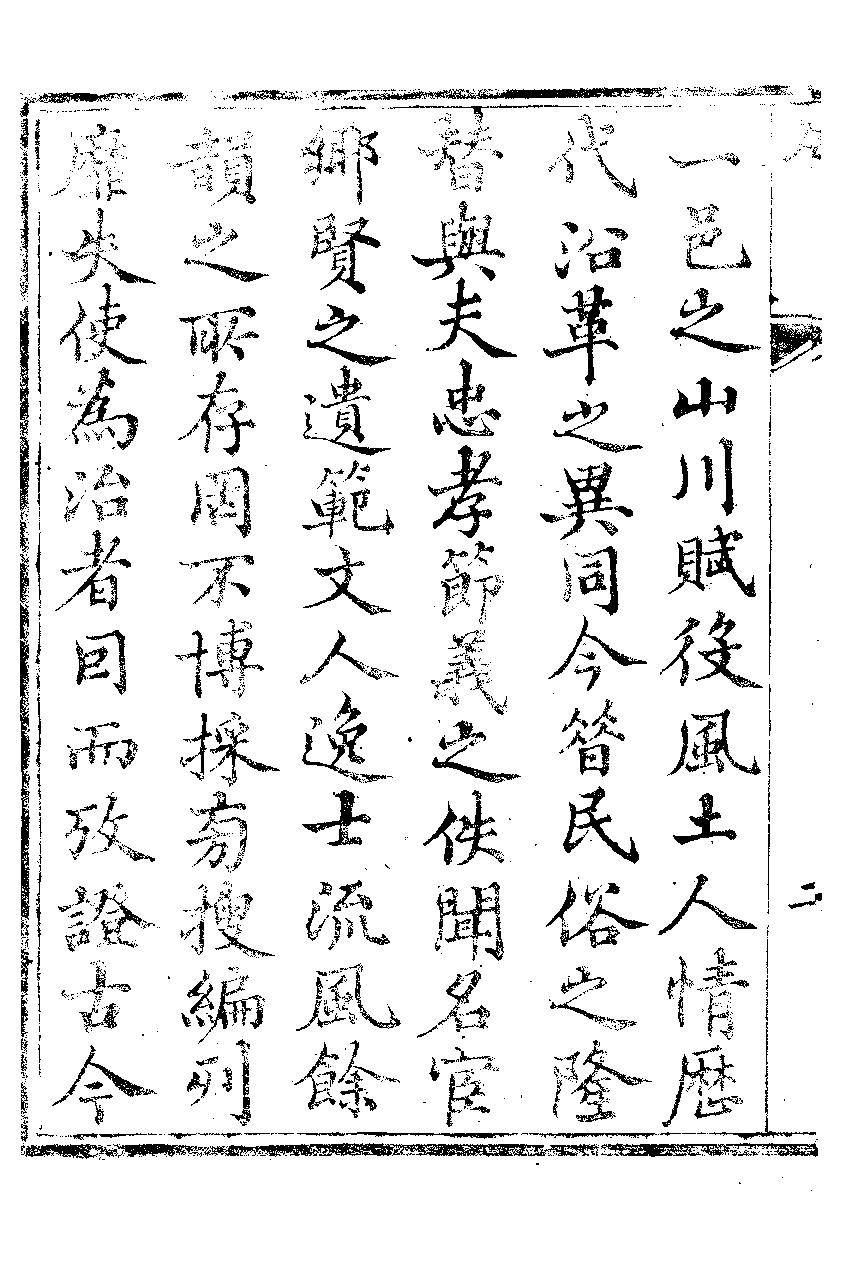 一邑之山川賦役風土人情歷
代沿革之異同今簪民俗之隆
替與夫忠孝節義之佚聞名宦
鄉賢之遺範文人逸士流風餘
韻之所存罔不博採旁搜編列
靡失使為治者因而攷證古今
二